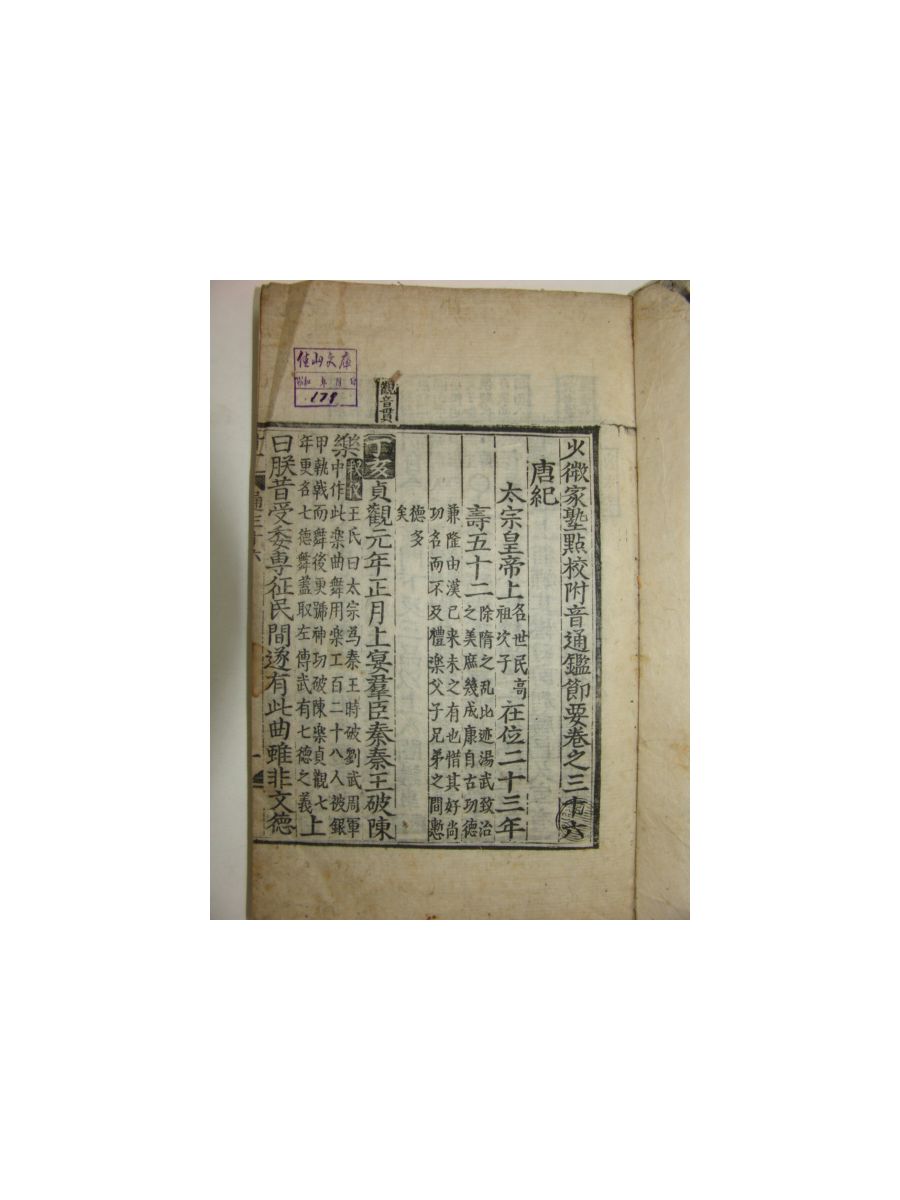 少微家塾點校附音通鑑節要卷之三十六
唐紀
太宗皇帝上名世民高祖次子在位二十三年
壽五十二除隋之乱比迹湯武致治之美庶幾成康自古功德
兼隆由漢已来未之有也惜其好尚功名而不及禮楽父子兄弟之間慙
德多矣
觀音貫
丁亥貞觀元年正月上宴羣臣奏秦王破陳
楽王氏曰太宗爲秦王時破劉武周軍中作此楽曲舞用楽工百二十八人被銀
甲執戟而舞後更號神功破陳楽貞觀七年更名七德舞蓋取左傳武有七德之義上
曰朕昔受委專征民間遂有此曲雖非文德
通三十六
佳山文庫
179